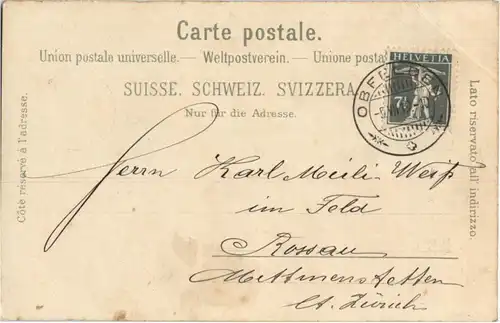 Carte postale.
Union postale universelle. — Weltpostverein. — Unione posta
HELVETIA
7½
SUISSE. SCHWEIZ. SVIZZERA.
OBFELDEN
Nur für die Adresse.
Côté réservé à l'adresse.
Lato riservato all' indirizzo.
Herrn Karl Meili-Weiß
im Feld
Rossau
Mettmenstetten
Ct. Zürich